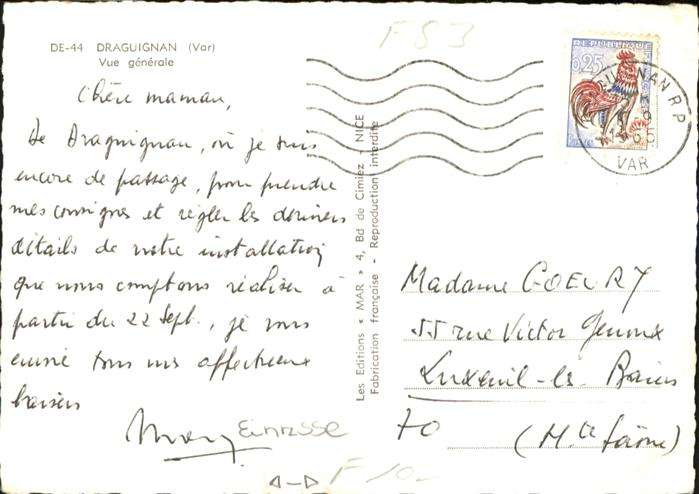 F 53
DE-44 DRAGUIGNAN (Var)
Vue générale
REPUBLIQUE
0,25
GUIGNAN R.P.
VAR
Chère maman,
De Draguignan, où je suis
encore de passage, pour prendre
mes consignes et régler les derniers
détails de notre installation
que nous comptons réaliser à
partir du 22 Sept., je vous
envoie tous mes affectueux
baisers
EINTSSE
Les Editions « MAR » 4, Bd de Cimiez - NICE
Fabrication française - Reproduction interdite
Madame GOEURY
55 rue Victor Genoux
Luxeuil-les-Bains
70 (Hte Saône)
F 10-